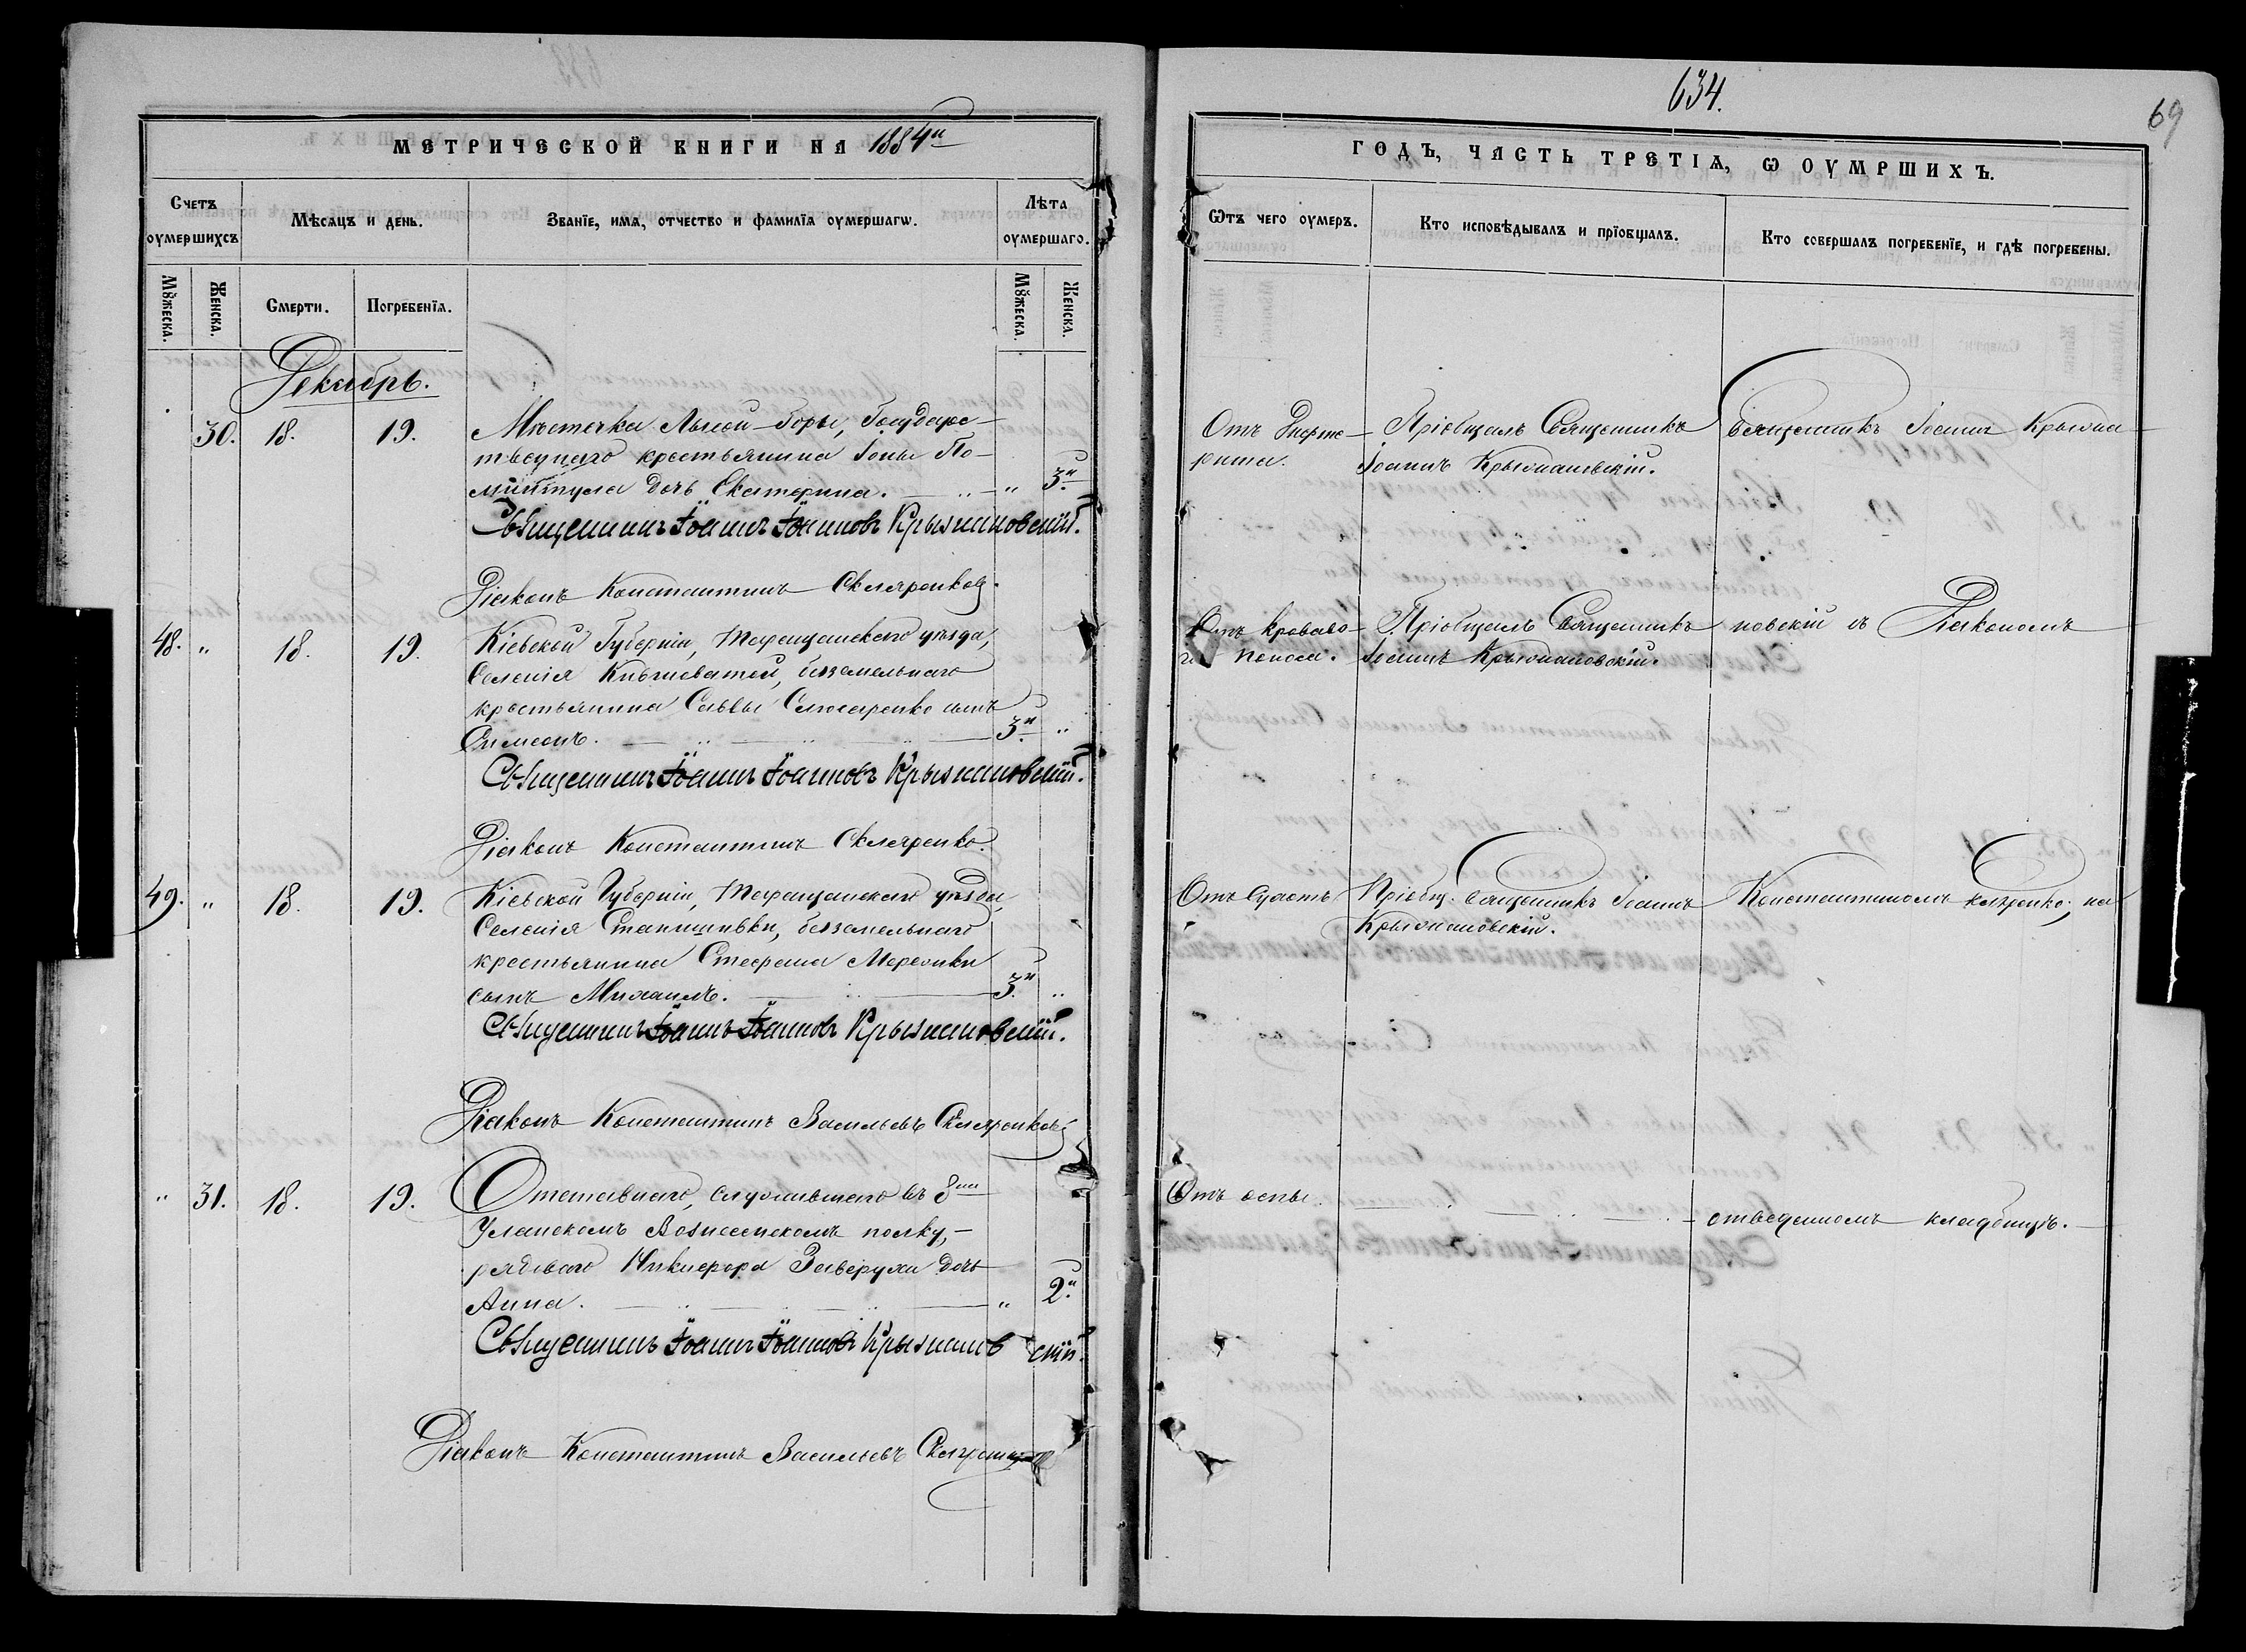 634.
69
МЕТРИЧЕСКОЙ КНИГИ НА 1884й
ГОДЪ, ЧАСТЬ ТРЕТІѦ, Ѡ ОУМРШИХЪ.
Счетъ оумершихсъ
Мѣсяцъ и день.
Званїе, имѧ, отчество и фамилїѧ оумершагѡ.
Лѣта оумершаго.
Мꙋжеска.
Женска.
Смерти.
Погребенїѧ.
Мꙋжеска.
Женска.
Ѿтъ чего оумеръ.
Кто исповѣдывалъ и прїобщалъ.
Кто совершалъ погребенїе, и гдѣ погребены.
Декабрь.
30. 18. 19.
Мѣстечка Лысой-Горы, Государс-
твеннаго крестьянина Іоны По-
дочь Екатерина. " 3.
Священникъ Іоаннъ Іоанновъ Крыжановскій.
Діаконъ Константинъ Скляренко.
Отъ Дифте-
рита.
Пріобщалъ Священникъ
Іоаннъ Крыжановскій.
Священникъ Іоаннъ Крыжа-
48. " 18. 19.
Кіевской Губерніи, Таращанскаго уѣзда,
Селенія Кившоватой, безземельнаго
крестьянина Саввы Слюсаренко сынъ
Симеонъ. 3. "
Священникъ Іоаннъ Іоанновъ Крыжановскій.
Діаконъ Константинъ Скляренко.
Отъ Кроваво-
го поноса.
Пріобщалъ Священникъ
Іоаннъ Крыжановскій.
новскій съ Діакономъ
49. " 18. 19.
Кіевской Губерніи, Таращанскаго уѣзда,
Селенія Станишивки, безземельнаго
крестьянина Стефана
сынъ Михаилъ. 3. "
Священникъ Іоаннъ Іоанновъ Крыжановскій.
Діаконъ Константинъ Васильевъ Скляренко
Отъ
Пріобщ. Священникъ Іоаннъ
Крыжановскій.
Константиномъ Скляренко, на
" 31. 18. 19.
Отставнаго, служившаго въ 8мъ
Уланскомъ Вознесенскомъ полку,-
рядоваго Никифора Заверухи дочь
Анна. " 2.
Священникъ Іоаннъ Іоанновъ Крыжановскій.
Діаконъ Константинъ Васильевъ Скляренко
Отъ оспы.
отведенномъ кладбищѣ.